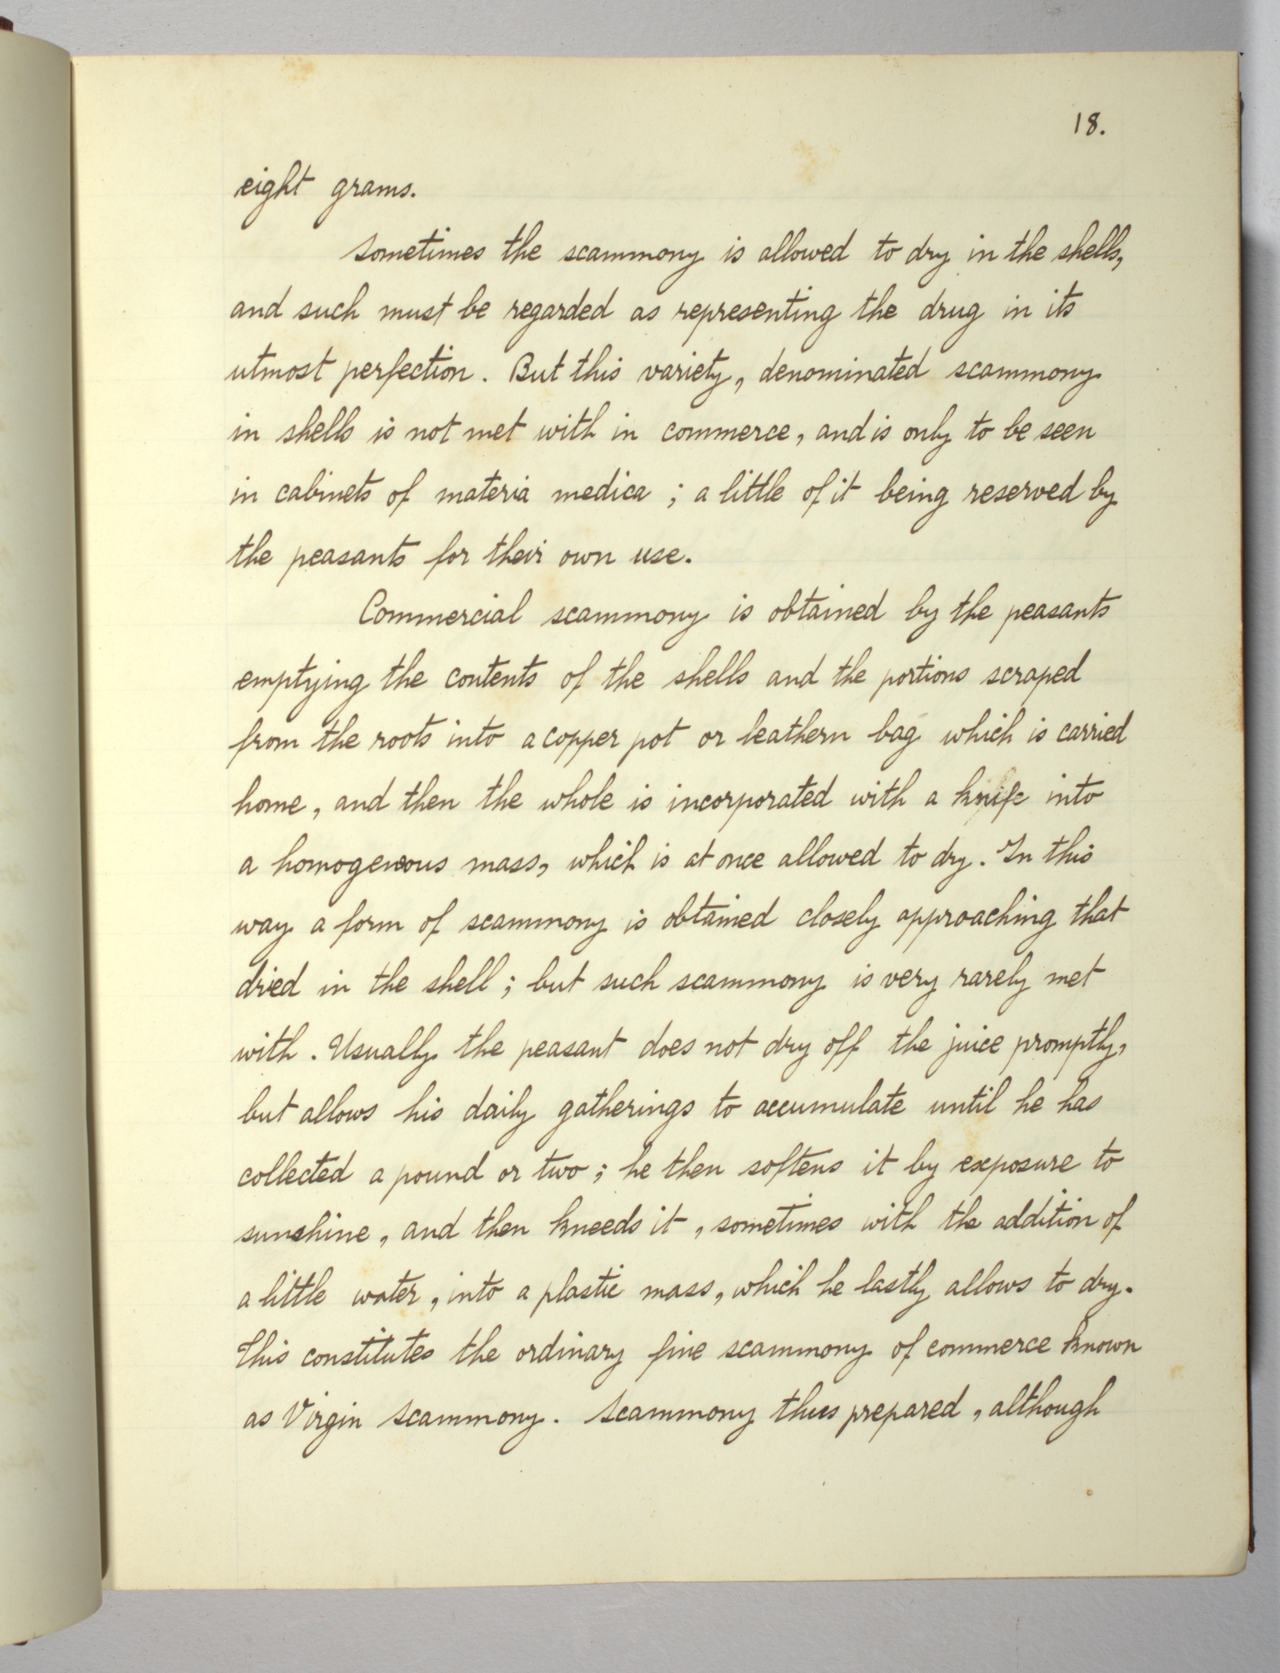 18.
eight grams.
Sometimes the scammony is allowed to dry in the shells,
and such must be regarded as representing the drug in its
utmost perfection. But this variety, denominated scammony
in shells is not met with in commerce, and is only to be seen
in cabinets of materia medica; a little of it being reserved by
the peasants for their own use.
Commercial scammony is obtained by the peasants
emptying the contents of the shells and the portions scraped
from the roots into a copper pot or leathern bag which is carried
home, and then the whole is incorporated with a knife into
a homogeneous mass, which is at once allowed to dry. In this
way a form of scammony is obtained closely approaching that
dried in the shell; but such scammony is very rarely met
with. Usually the peasant does not dry off the juice promptly,
but allows his daily gatherings to accumulate until he has
collected a pound or two; he then softens it by exposure to
sunshine, and then kneeds it, sometimes with the addition of
a little water, into a plastic mass, which he lastly allows to dry.
This constitutes the ordinary fine scammony of commerce known
as Virgin Scammony. Scammony thus prepared, although